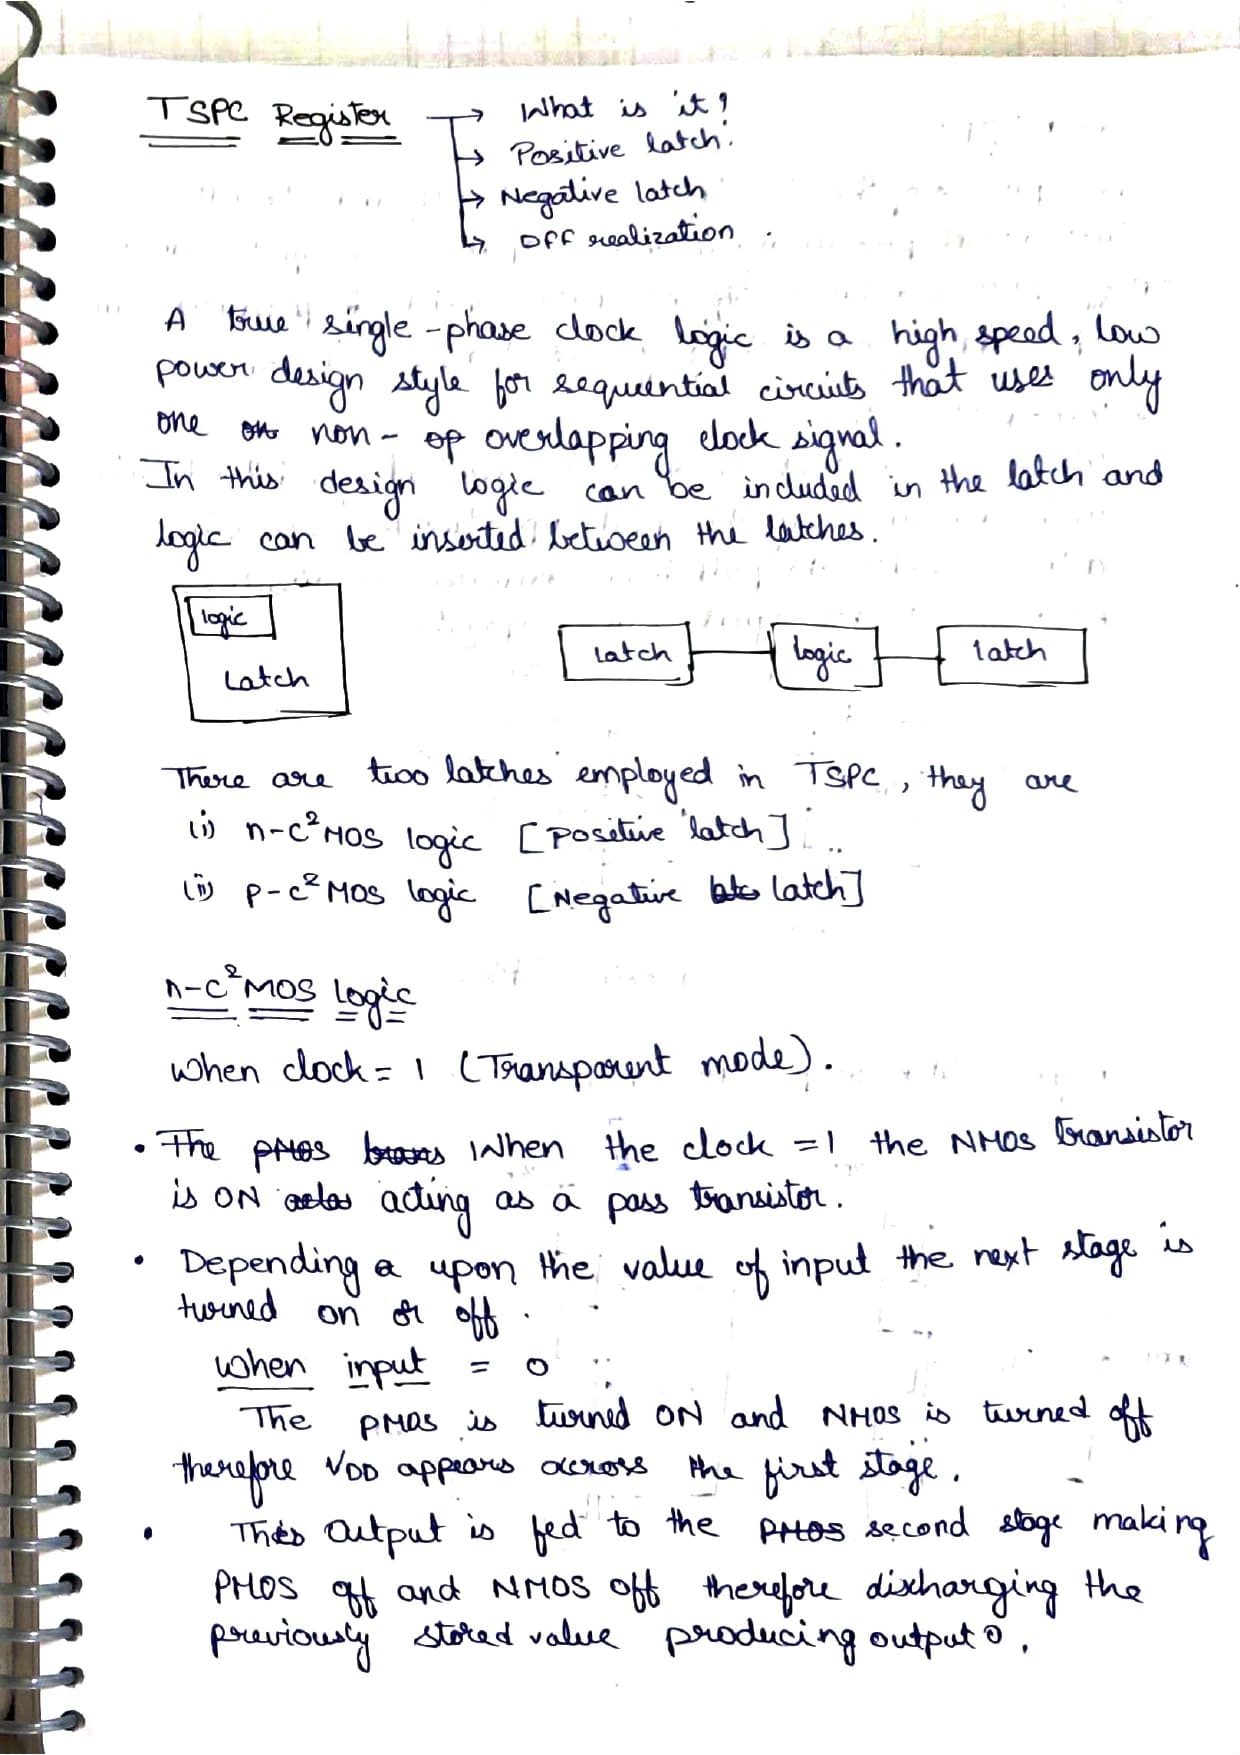 TSPC Register → What is it?
→ Positive latch.
→ Negative latch
→ DFF realization.
A true single-phase clock logic is a high speed, low
power design style for sequential circuits that uses only
one non- overlapping clock signal.
In this design logic can be included in the latch and
logic can be inserted between the latches.
logic
Latch
Latch
logic
latch
There are two latches employed in TSPC, they are
(i) n-C²MOS logic [Positive latch]
(ii) p-C²MOS logic [Negative latch]
n-C²MOS logic
When clock = 1 (Transparent mode).
• The When the clock = 1 the NMOS transistor
is ON acting as a pass transistor.
• Depending a upon the value of input the next stage is
turned on or off.
when input = 0
The PMOS is turned ON and NMOS is turned off
therefore VDD appears across the first stage.
• This Output is fed to the second stage making
PMOS off and NMOS off therefore discharging the
previously stored value producing output 0.